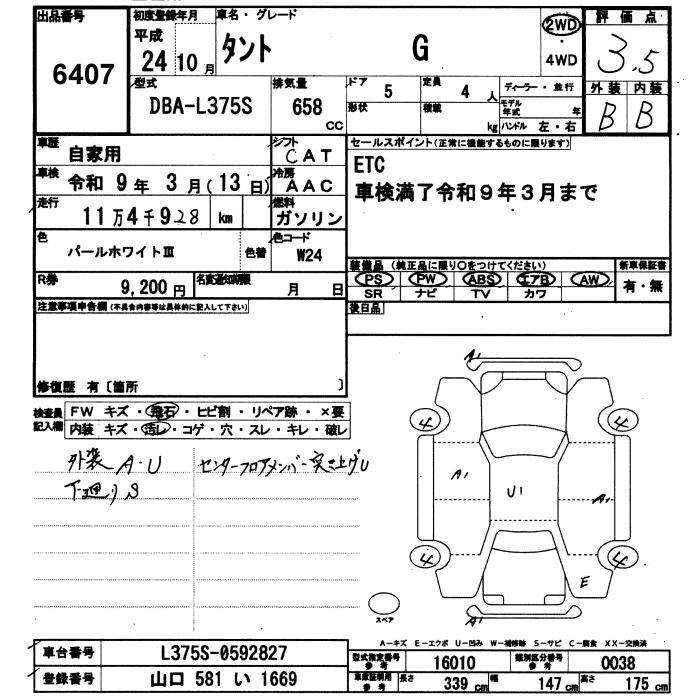 出品番号
6407
初度登録年月
平成
24 10月
車名・グレード
タント G
2WD
・
4WD
評価点
3.5
外装 内装
B B
型式
DBA-L375S
排気量
658
CC
ドア
5
定員
4人
ディーラー・並行
形状
積載
kg
モデル年式
年
ハンドル 左・右
車歴
自家用
シフト
CAT
車検
令和9年3月(13日)
冷房
AAC
走行
11万4千928 km
燃料
ガソリン
色
パールホワイトⅢ
色替
色コード
W24
R券
9,200円
名変通知期限
月 日
セールスポイント(正常に機能するものに限ります)
ETC
車検満了令和9年3月まで
装備品(純正品に限り○をつけてください)
新車保証書
PS PW ABS エアB AW
SR ナビ TV カワ
有・無
後日品
注意事項申告欄(不具合内容等は具体的に記入して下さい)
修復歴 有〔箇所 〕
検査員
記入欄
FW キズ・飛石・ヒビ割・リペア跡・×要
内装 キズ・汚レ・コゲ・穴・スレ・キレ・破レ
外装 A・U
下廻りS
センターフロアメンバー突き上げU
A1
4 4
A1 U1 A1
4 4
E
A1
スペア
A-キズ E-エクボ U-凹み W-補修跡 S-サビ C-腐食 XX-交換済
車台番号
L375S-0592827
登録番号
山口 581 い 1669
型式指定番号
参考
16010
類別区分番号
参考
0038
車庫証明用
参考
長さ 339cm
幅 147cm
高さ 175cm